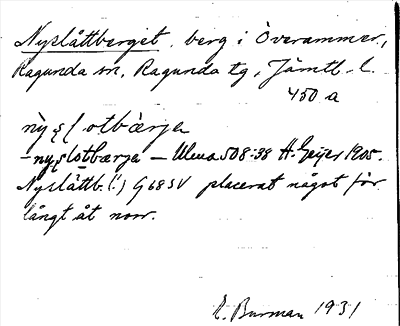 Nyslåttberget, berg i Överammer,
Ragunda sn, Ragunda tg, Jämtl. l.
450 a
nỳʂl otbàrja
– nyʂlotbærja – Uleva 508:38 H. Geijer 1905.
Nyslåttb. (!) G 68 SV placerat något för
långt åt norr.
E. Burman 1931